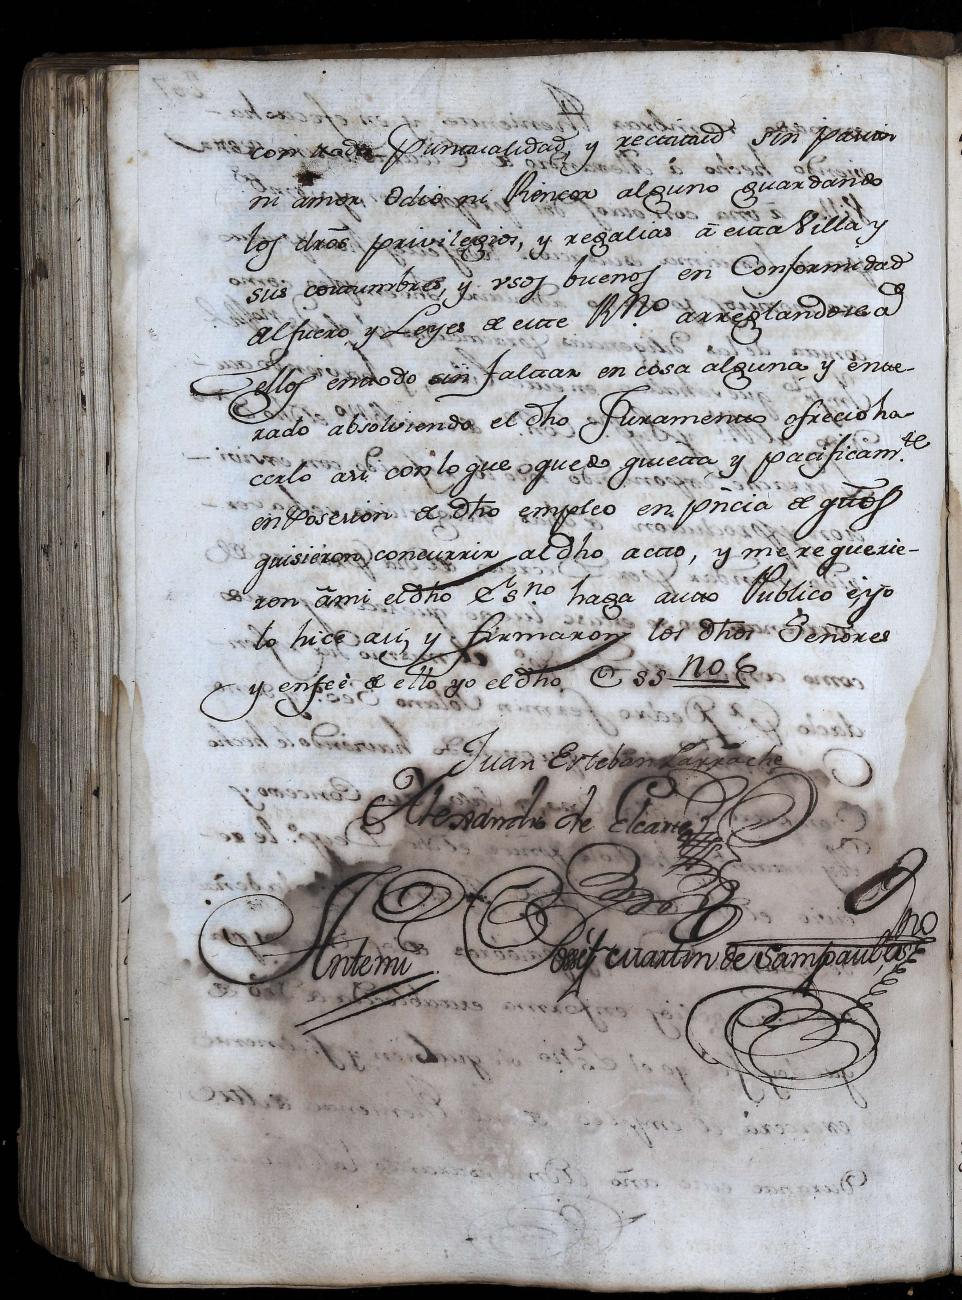 con toda Puntualidad, y rectitud sin pasion
ni amor Odio ni Rencor alguno guardando
los dros privilegios, y regalias â esta Villa y
sus costumbres, y vsos buenos en Conformidad
al fuero, y Leyes de este RNo arreglandose a
ellos entodo sin faltar en cosa alguna y ente-
rado absolviendo el dho Juramento ofrecio ha-
cerlo asi con lo que quedo quieta y pacificamte
en Posesion de dho empleo en pñcia de qtos
quisieron concurrir al dho acto, y me requirie-
ron â mi el dho Essno haga auto Publico, e yo
lo hice asi, y firmaron los dhos Señores
y enfeè de ello yo el dho Essno
Juan Esteban Larrache
Alexandro de Elcarte
Antemi Josef Martin de Sampaul, essno